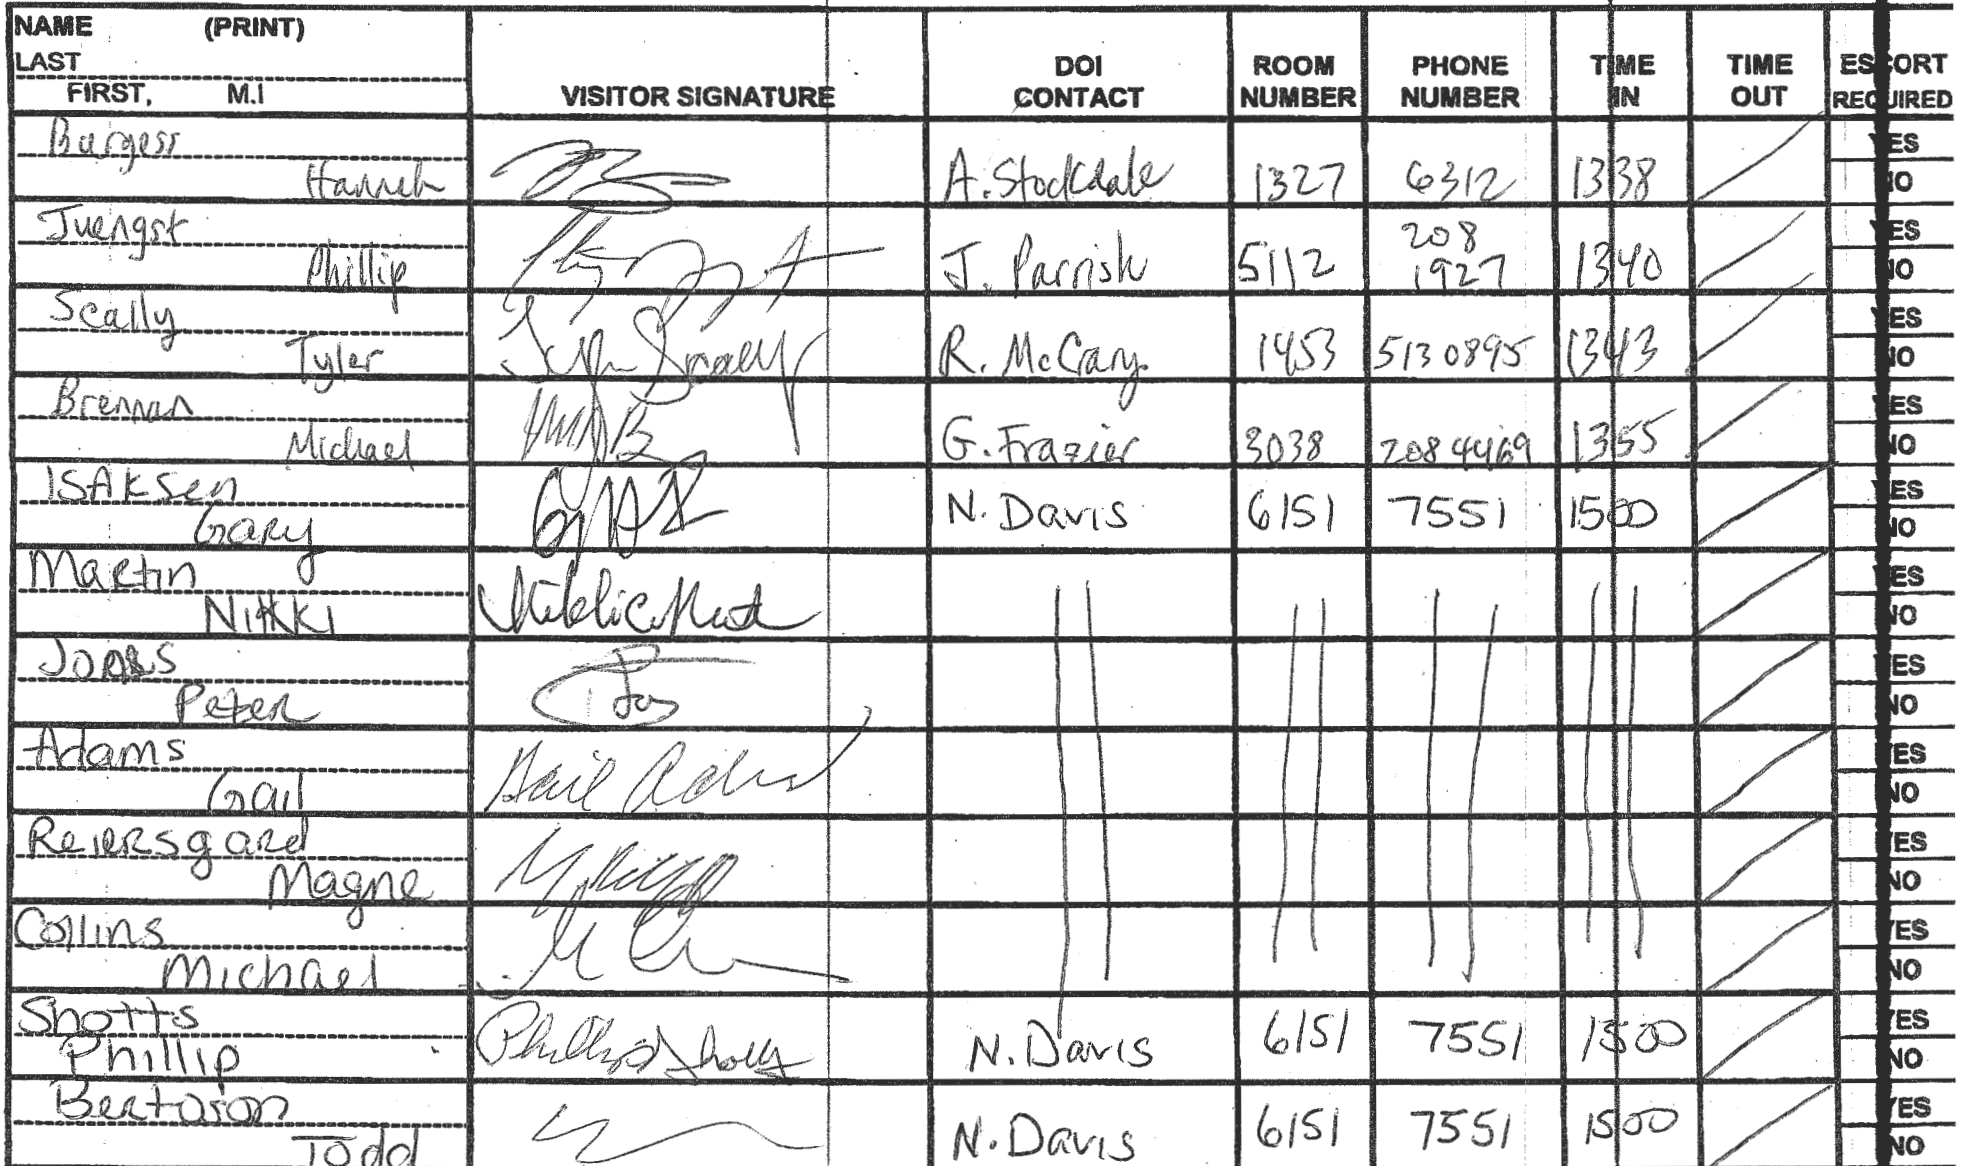 NAME (PRINT)
LAST
FIRST, M.I
VISITOR SIGNATURE
DOI CONTACT
ROOM NUMBER
PHONE NUMBER
TIME IN
TIME OUT
ESCORT REQUIRED
Burgess
Hannah A. Stockdale 1327 6312 1338 YES NO
Juengst
Phillip J. Parrish 5112 208 1927 1340 YES NO
Scally
Tyler R. McCrary 1453 5130895 1343 YES NO
Brennan
Michael G. Frazier 3038 2084469 1355 YES NO
ISAKSen
Gary N. Davis 6151 7551 1500 YES NO
Martin
Nikki YES NO
Peter YES NO
Adams
Gail Gail YES NO
Reiersgard
Magne YES NO
Collins
Michael YES NO
Shotts
Phillip Phillip Shotts N. Davis 6151 7551 1500 YES NO
Todd N. Davis 6151 7551 1500 YES NO